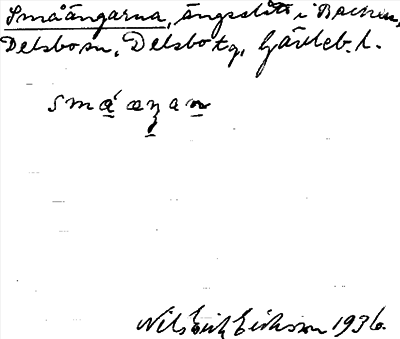 Småängarna, ängsslått i Backen,
Delsbo sn, Delsbo tg, Gävleb. l.
små æŋan
Nils Erik Eriksson 1936.